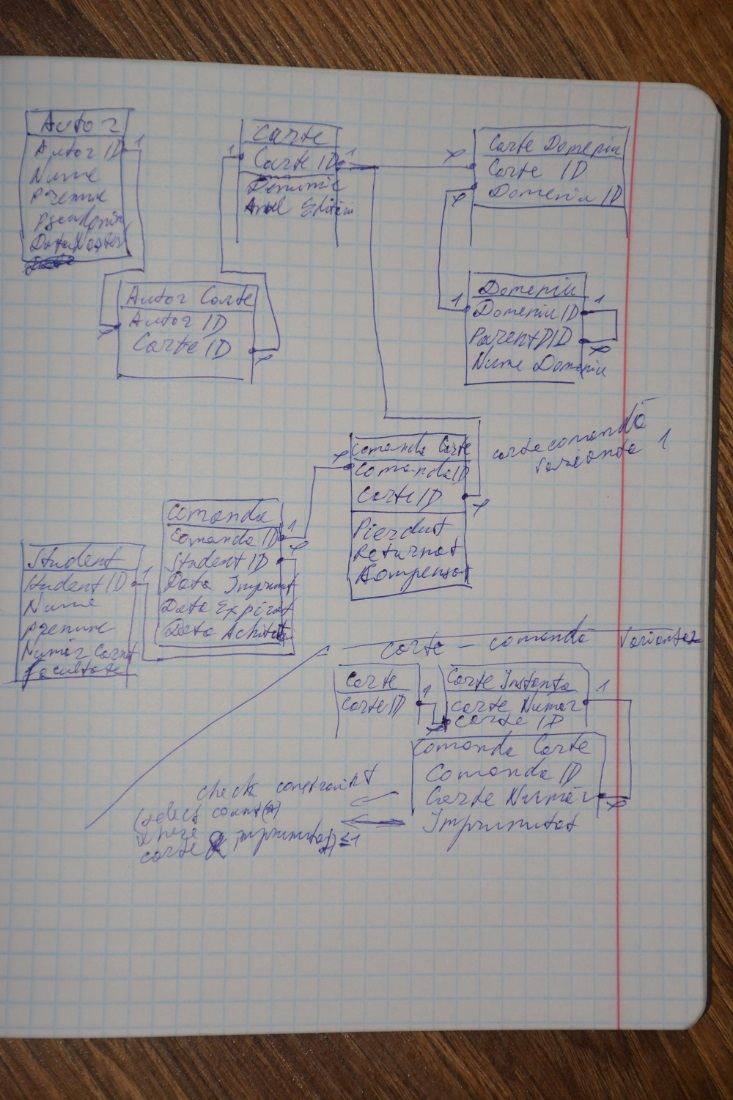 Autor
Autor ID 1
Nume
Prenume
Pseudonim
Data Naster
Carte
1 Carte ID 1
Denumire
Anul Editiei
Carte Domeniu
∞ Carte ID
∞ Domeniu ID
Autor Carte
∞ Autor ID
Carte ID ∞
Domeniu
1 Domeniu ID 1
ParentDID ∞
Nume Domeniu
Comanda Carte
∞ Comanda ID
Carte ID ∞
Pierdut
Returnat
Compensat
carte comandă
varianta 1
Comanda
Comanda ID 1
Student ID ∞
Data Imprumut
Data Expirat
Data Achitat
Student
Student ID 1
Nume
Prenume
Numar Carnet
Facultate
carte - comandă varianta 2
Carte
Carte ID 1
Carte Instanta
Carte Numar 1
∞ Carte ID
Comanda Carte
Comanda ID
Carte Număr ∞
Imprumutat
check constraint
(select count(*)
where
carte imprumutat) ≤ 1